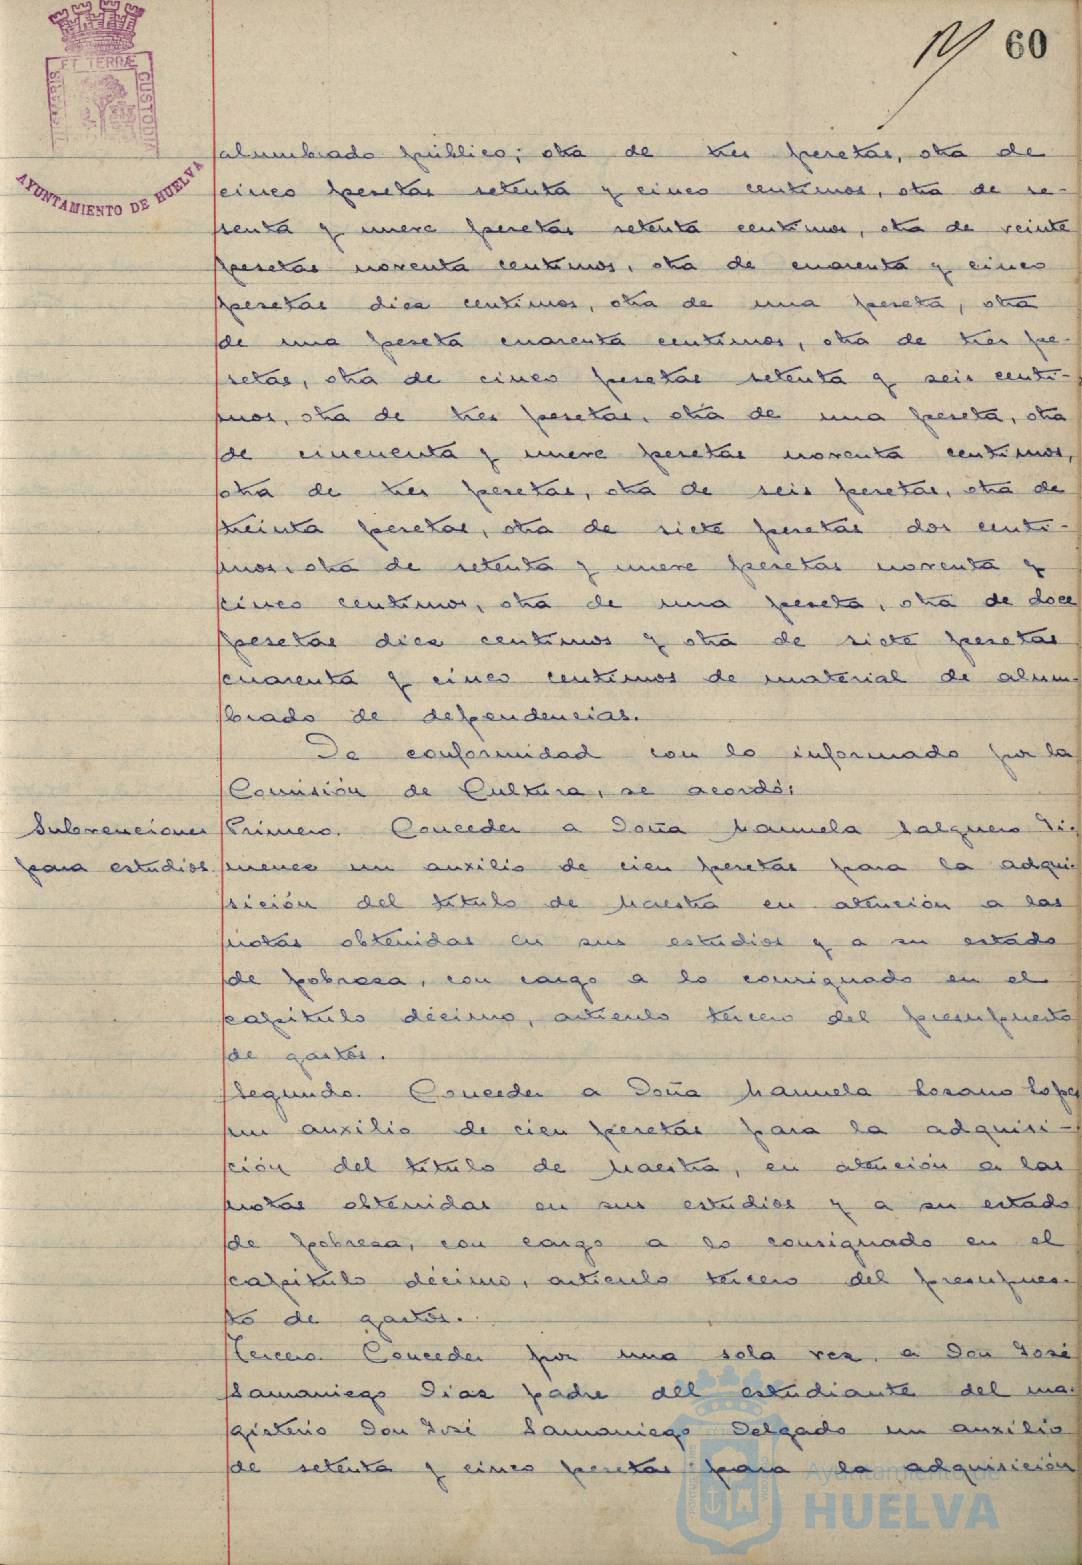 60
ET TERRÆ
CUSTODIA
AYUNTAMIENTO DE HUELVA
alumbrado público; otra de tres pesetas, otra de
cinco pesetas setenta y cinco centimos, otra de se-
senta y nueve pesetas setenta centimos, otra de veinte
pesetas noventa centimos, otra de cuarenta y cinco
pesetas diez centimos, otra de una peseta, otra
de una peseta cuarenta centimos, otra de tres pe-
setas, otra de cinco pesetas setenta y seis centi-
mos, otra de tres pesetas, otra de una peseta, otra
de cincuenta y nueve pesetas noventa centimos,
otra de tres pesetas, otra de seis pesetas, otra de
treinta pesetas, otra de siete pesetas dos centi-
mos, otra de setenta y nueve pesetas noventa y
cinco centimos, otra de una peseta, otra de doce
pesetas diez centimos y otra de siete pesetas
cuarenta y cinco centimos de material de alum-
brado de dependencias.
De conformidad con lo informado por la
Comisión de Cultura, se acordó:
Subvenciones
para estudios.
Primero. Conceder a Doña Manuela Salguero Ji-
menez un auxilio de cien pesetas para la adqui-
sición del titulo de Maestra en atención a las
notas obtenidas en sus estudios y a su estado
de pobreza, con cargo a lo consignado en el
capitulo décimo, articulo tercero del presupuesto
de gastos.
Segundo. Conceder a Doña Manuela Lozano Lopez
un auxilio de cien pesetas para la adquisi-
ción del titulo de Maestra, en atención a las
notas obtenidas en sus estudios y a su estado
de pobreza, con cargo a lo consignado en el
capitulo décimo, articulo tercero del presupues-
to de gastos.
Tercero. Conceder por una sola vez, a Don José
Samaniego Diaz padre del estudiante del ma-
gisterio Don José Samaniego Delgado un auxilio
de setenta y cinco pesetas para la adquisición
Ayuntamiento de
HUELVA